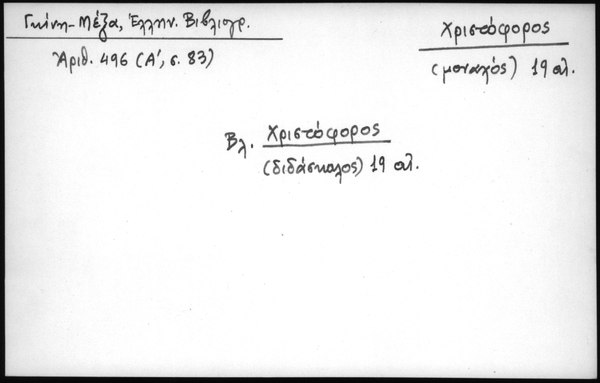 Γκίνη-Μέξα, Ἑλλην. Βιβλιογρ.
Ἀριθ. 496 (Α', σ. 83)
Χριστόφορος
(μοναχός) 19 αἰ.
Βλ. Χριστόφορος
(διδάσκαλος) 19 αἰ.